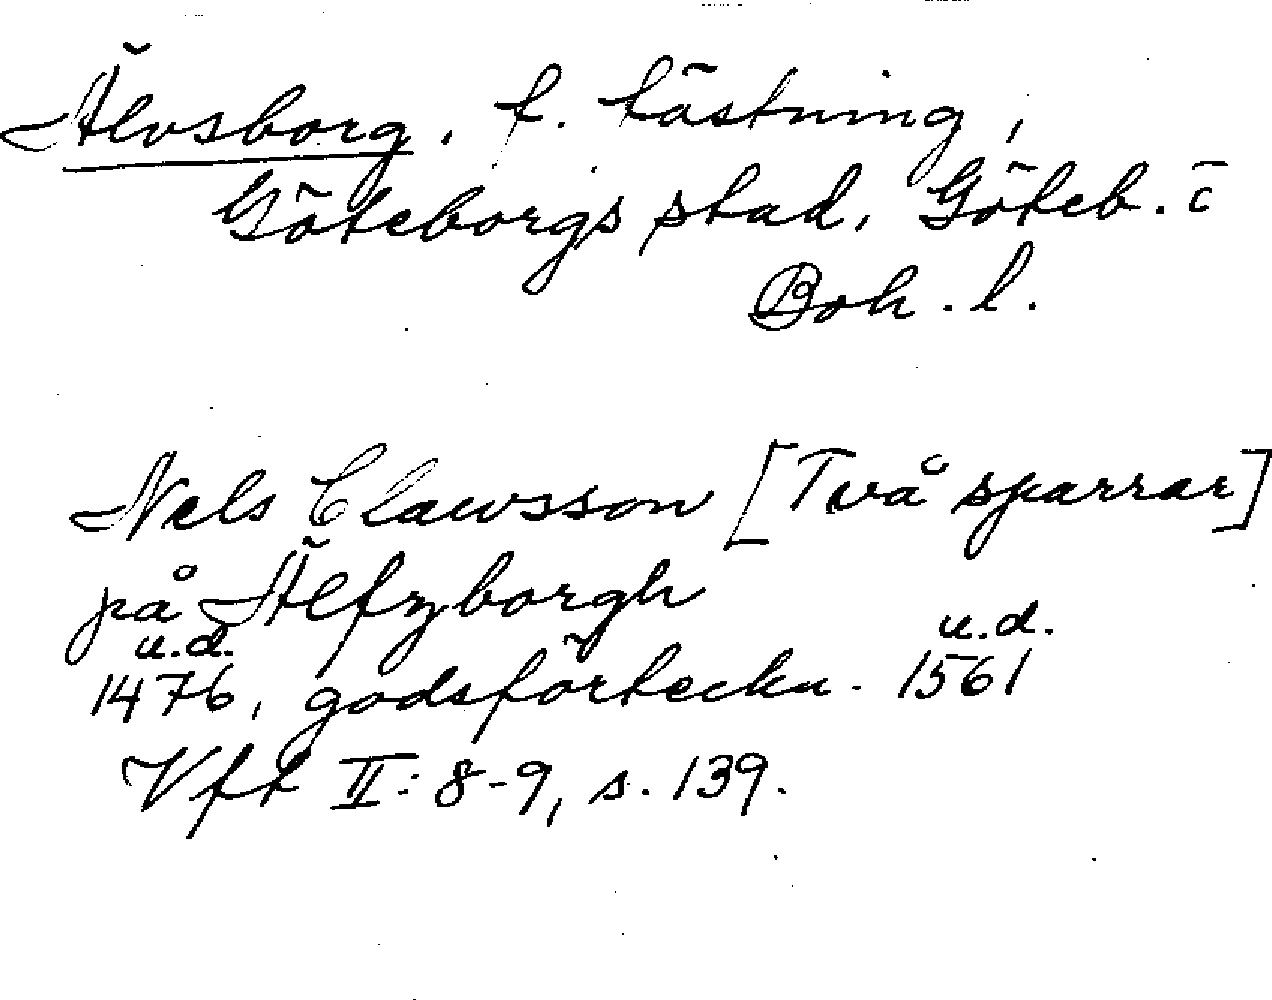 Älvsborg, f. fästning,
Göteborgs stad, Göteb. o
Boh. l.
Nels Clawsson [Två sparrar]
på Älefzborgh
u.d. u.d.
1476, godsförteckn. 1561
Vft II: 8-9, s. 139.